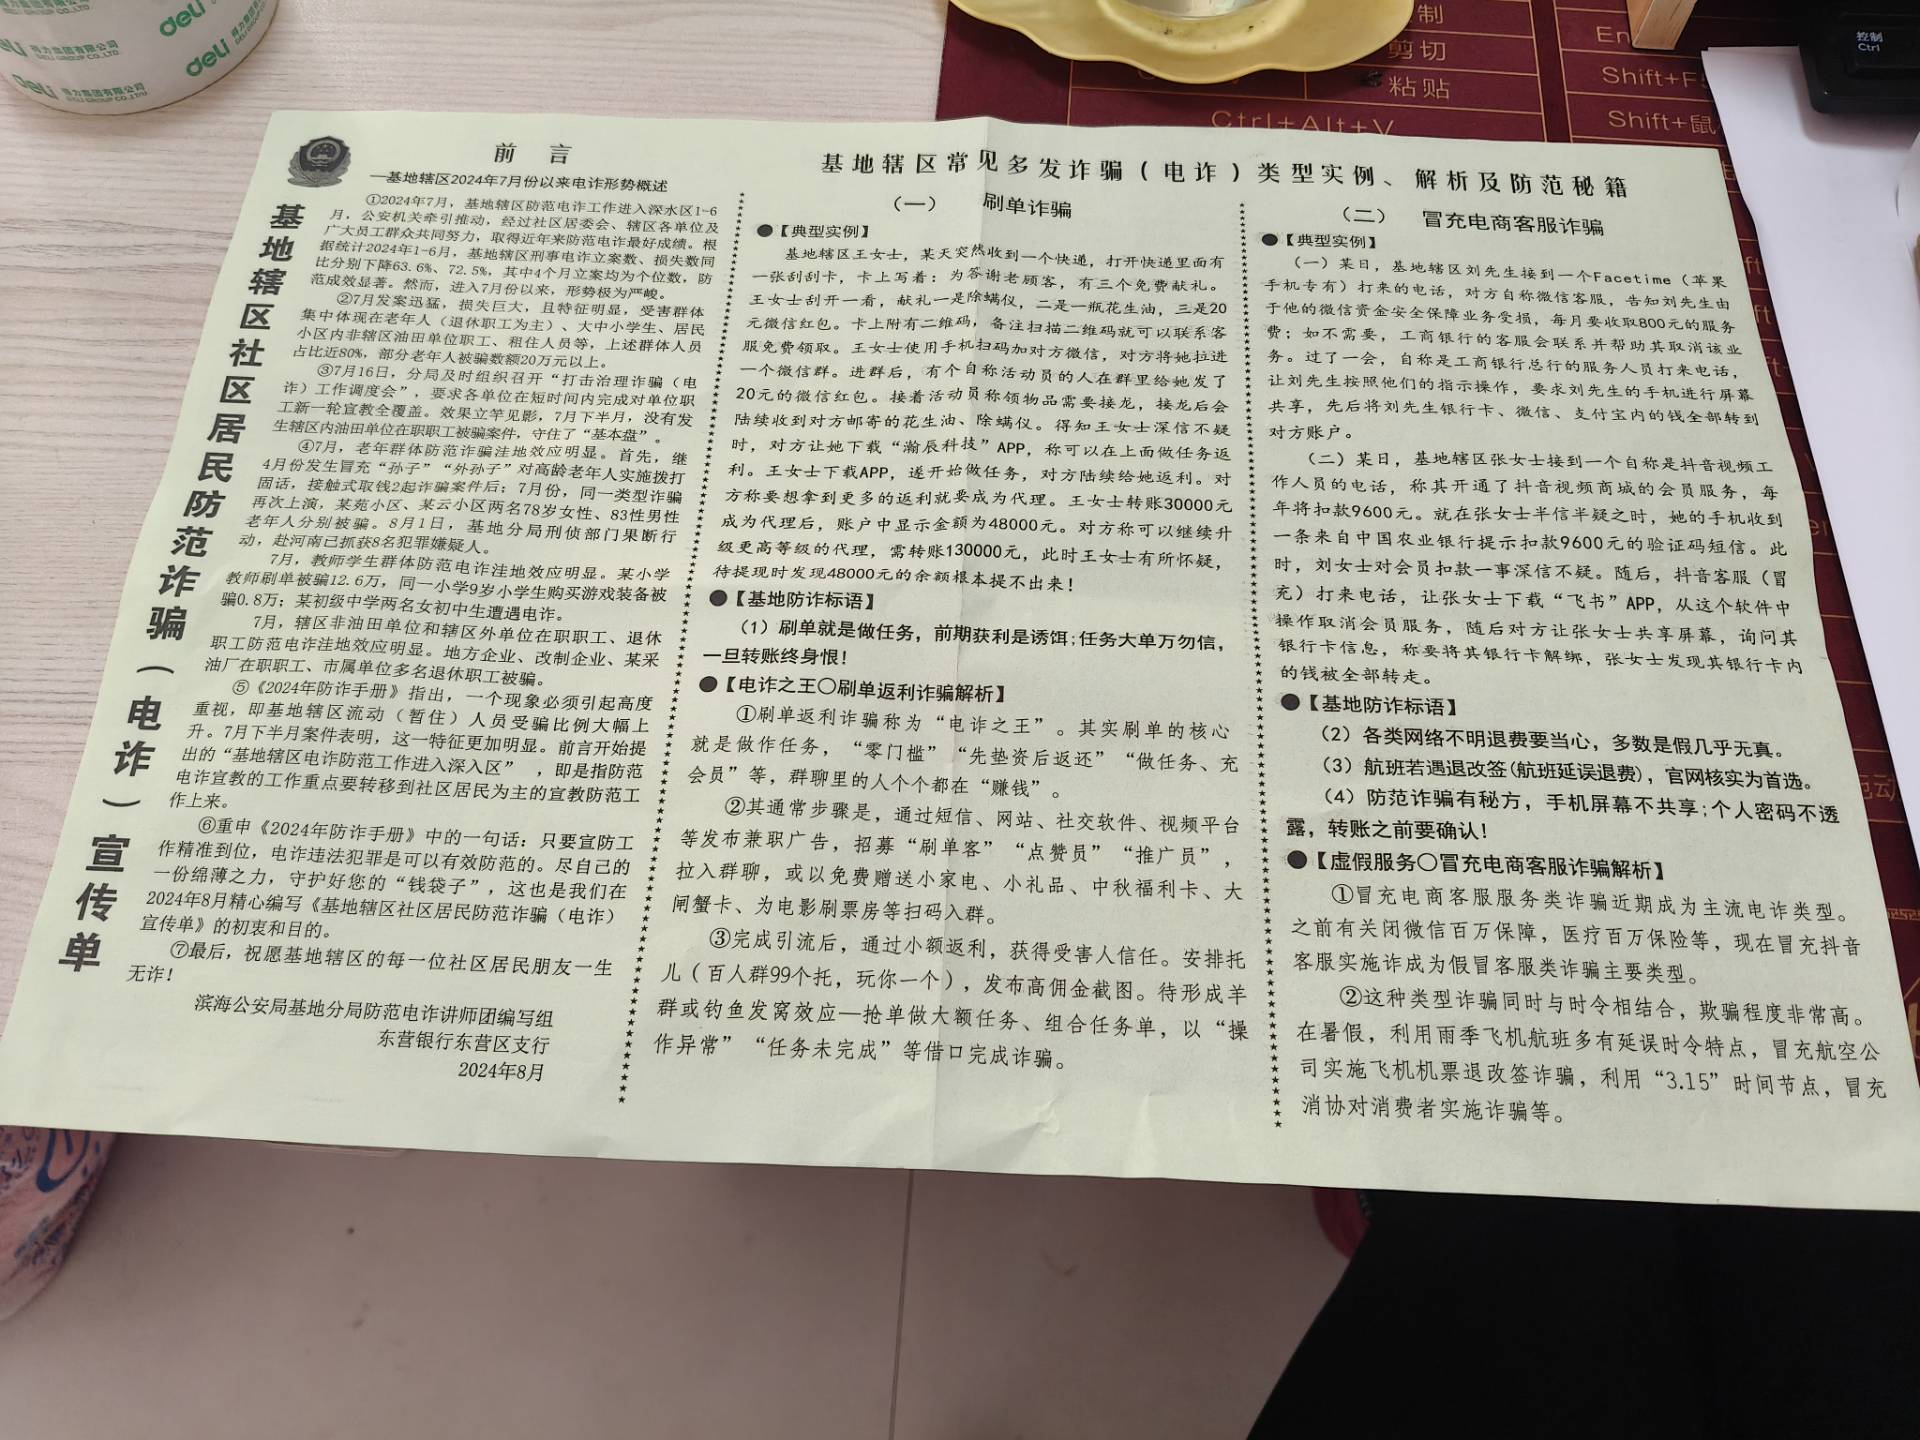 deli
deli
得力集团有限公司
DELI GROUP CO.,LTD.
deli
得力集团有限公司
DELI GROUP CO.,LTD.
deli
得力集团有限公司
DELI GROUP CO.,LTD.
剪切
粘贴
Ctrl+Alt+V
Shift+F5
Shift+鼠
控制
Ctrl
基地辖区社区居民防范诈骗(电诈)宣传单
前 言
—基地辖区2024年7月份以来电诈形势概述
①2024年7月，基地辖区防范电诈工作进入深水区1-6
月，公安机关牵引推动，经过社区居委会、辖区各单位及
广大员工群众共同努力，取得近年来防范电诈最好成绩。根
据统计2024年1-6月，基地辖区刑事电诈立案数、损失数同
比分别下降63.6%、72.5%，其中4个月立案均为个位数，防
范成效显著。然而，进入7月份以来，形势极为严峻。
②7月发案迅猛，损失巨大，且特征明显，受害群体
集中体现在老年人（退休职工为主）、大中小学生、居民
小区内非辖区油田单位职工、租住人员等，上述群体人员
占比近80%，部分老年人被骗数额20万元以上。
③7月16日，分局及时组织召开“打击治理诈骗（电
诈）工作调度会”，要求各单位在短时间内完成对单位职
工新一轮宣教全覆盖。效果立竿见影，7月下半月，没有发
生辖区内油田单位在职职工被骗案件，守住了“基本盘”。
④7月，老年群体防范诈骗洼地效应明显。首先，继
4月份发生冒充“孙子”“外孙子”对高龄老年人实施拨打
固话，接触式取钱2起诈骗案件后；7月份，同一类型诈骗
再次上演，某苑小区、某云小区两名78岁女性、83性男性
老年人分别被骗。8月1日，基地分局刑侦部门果断行
动，赴河南已抓获8名犯罪嫌疑人。
7月，教师学生群体防范电诈洼地效应明显。某小学
教师刷单被骗12.6万，同一小学9岁小学生购买游戏装备被
骗0.8万；某初级中学两名女初中生遭遇电诈。
7月，辖区非油田单位和辖区外单位在职职工、退休
职工防范电诈洼地效应明显。地方企业、改制企业、某采
油厂在职职工、市属单位多名退休职工被骗。
⑤《2024年防诈手册》指出，一个现象必须引起高度
重视，即基地辖区流动（暂住）人员受骗比例大幅上
升。7月下半月案件表明，这一特征更加明显。前言开始提
出的“基地辖区电诈防范工作进入深入区”，即是指防范
电诈宣教的工作重点要转移到社区居民为主的宣教防范工
作上来。
⑥重申《2024年防诈手册》中的一句话：只要宣防工
作精准到位，电诈违法犯罪是可以有效防范的。尽自己的
一份绵薄之力，守护好您的“钱袋子”，这也是我们在
2024年8月精心编写《基地辖区社区居民防范诈骗（电诈）
宣传单》的初衷和目的。
⑦最后，祝愿基地辖区的每一位社区居民朋友一生
无诈！
滨海公安局基地分局防范电诈讲师团编写组
东营银行东营区支行
2024年8月
基地辖区常见多发诈骗（电诈）类型实例、解析及防范秘籍
（一） 刷单诈骗
●【典型实例】
基地辖区王女士，某天突然收到一个快递，打开快递里面有
一张刮刮卡，卡上写着：为答谢老顾客，有三个免费献礼。
王女士刮开一看，献礼一是除螨仪，二是一瓶花生油，三是20
元微信红包。卡上附有二维码，备注扫描二维码就可以联系客
服免费领取。王女士使用手机扫码加对方微信，对方将她拉进
一个微信群。进群后，有个自称活动员的人在群里给她发了
20元的微信红包。接着活动员称领物品需要接龙，接龙后会
陆续收到对方邮寄的花生油、除螨仪。得知王女士深信不疑
时，对方让她下载“瀚辰科技”APP，称可以在上面做任务返
利。王女士下载APP，遂开始做任务，对方陆续给她返利。对
方称要想拿到更多的返利就要成为代理。王女士转账30000元
成为代理后，账户中显示金额为48000元。对方称可以继续升
级更高等级的代理，需转账130000元，此时王女士有所怀疑，
待提现时发现48000元的余额根本提不出来！
●【基地防诈标语】
（1）刷单就是做任务，前期获利是诱饵；任务大单万勿信，
一旦转账终身恨！
●【电诈之王〇刷单返利诈骗解析】
①刷单返利诈骗称为“电诈之王”。其实刷单的核心
就是做作任务，“零门槛”“先垫资后返还”“做任务、充
会员”等，群聊里的人个个都在“赚钱”。
②其通常步骤是，通过短信、网站、社交软件、视频平台
等发布兼职广告，招募“刷单客”“点赞员”“推广员”，
拉入群聊，或以免费赠送小家电、小礼品、中秋福利卡、大
闸蟹卡、为电影刷票房等扫码入群。
③完成引流后，通过小额返利，获得受害人信任。安排托
儿（百人群99个托，玩你一个），发布高佣金截图。待形成羊
群或钓鱼发窝效应—抢单做大额任务、组合任务单，以“操
作异常”“任务未完成”等借口完成诈骗。
（二） 冒充电商客服诈骗
●【典型实例】
（一）某日，基地辖区刘先生接到一个Facetime（苹果
手机专有）打来的电话，对方自称微信客服，告知刘先生由
于他的微信资金安全保障业务受损，每月要收取800元的服务
费；如不需要，工商银行的客服会联系并帮助其取消该业
务。过了一会，自称是工商银行总行的服务人员打来电话，
让刘先生按照他们的指示操作，要求刘先生的手机进行屏幕
共享，先后将刘先生银行卡、微信、支付宝内的钱全部转到
对方账户。
（二）某日，基地辖区张女士接到一个自称是抖音视频工
作人员的电话，称其开通了抖音视频商城的会员服务，每
年将扣款9600元。就在张女士半信半疑之时，她的手机收到
一条来自中国农业银行提示扣款9600元的验证码短信。此
时，刘女士对会员扣款一事深信不疑。随后，抖音客服（冒
充）打来电话，让张女士下载“飞书”APP，从这个软件中
操作取消会员服务，随后对方让张女士共享屏幕，询问其
银行卡信息，称要将其银行卡解绑，张女士发现其银行卡内
的钱被全部转走。
●【基地防诈标语】
（2）各类网络不明退费要当心，多数是假几乎无真。
（3）航班若遇退改签(航班延误退费)，官网核实为首选。
（4）防范诈骗有秘方，手机屏幕不共享；个人密码不透
露，转账之前要确认！
●【虚假服务〇冒充电商客服诈骗解析】
①冒充电商客服服务类诈骗近期成为主流电诈类型。
之前有关闭微信百万保障，医疗百万保险等，现在冒充抖音
客服实施诈成为假冒客服类诈骗主要类型。
②这种类型诈骗同时与时令相结合，欺骗程度非常高。
在暑假，利用雨季飞机航班多有延误时令特点，冒充航空公
司实施飞机机票退改签诈骗，利用“3.15”时间节点，冒充
消协对消费者实施诈骗等。